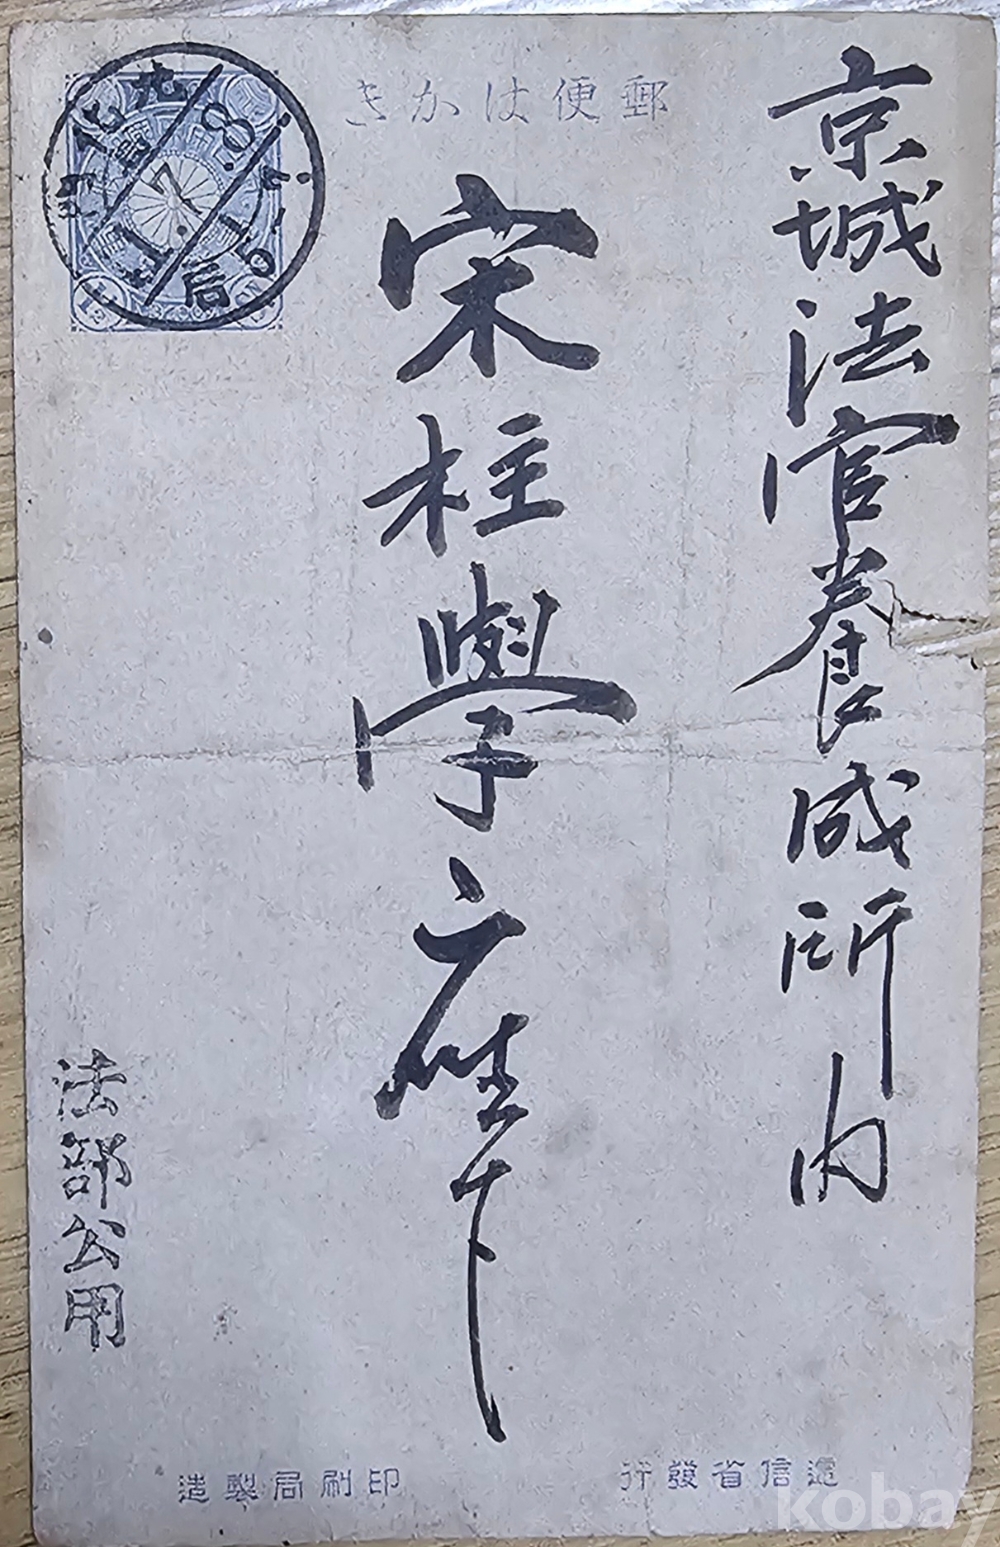 郵便はかき
京城法官養成所内
宋柱學座下
法部公用
逓信省發行
印刷局製造
kobay